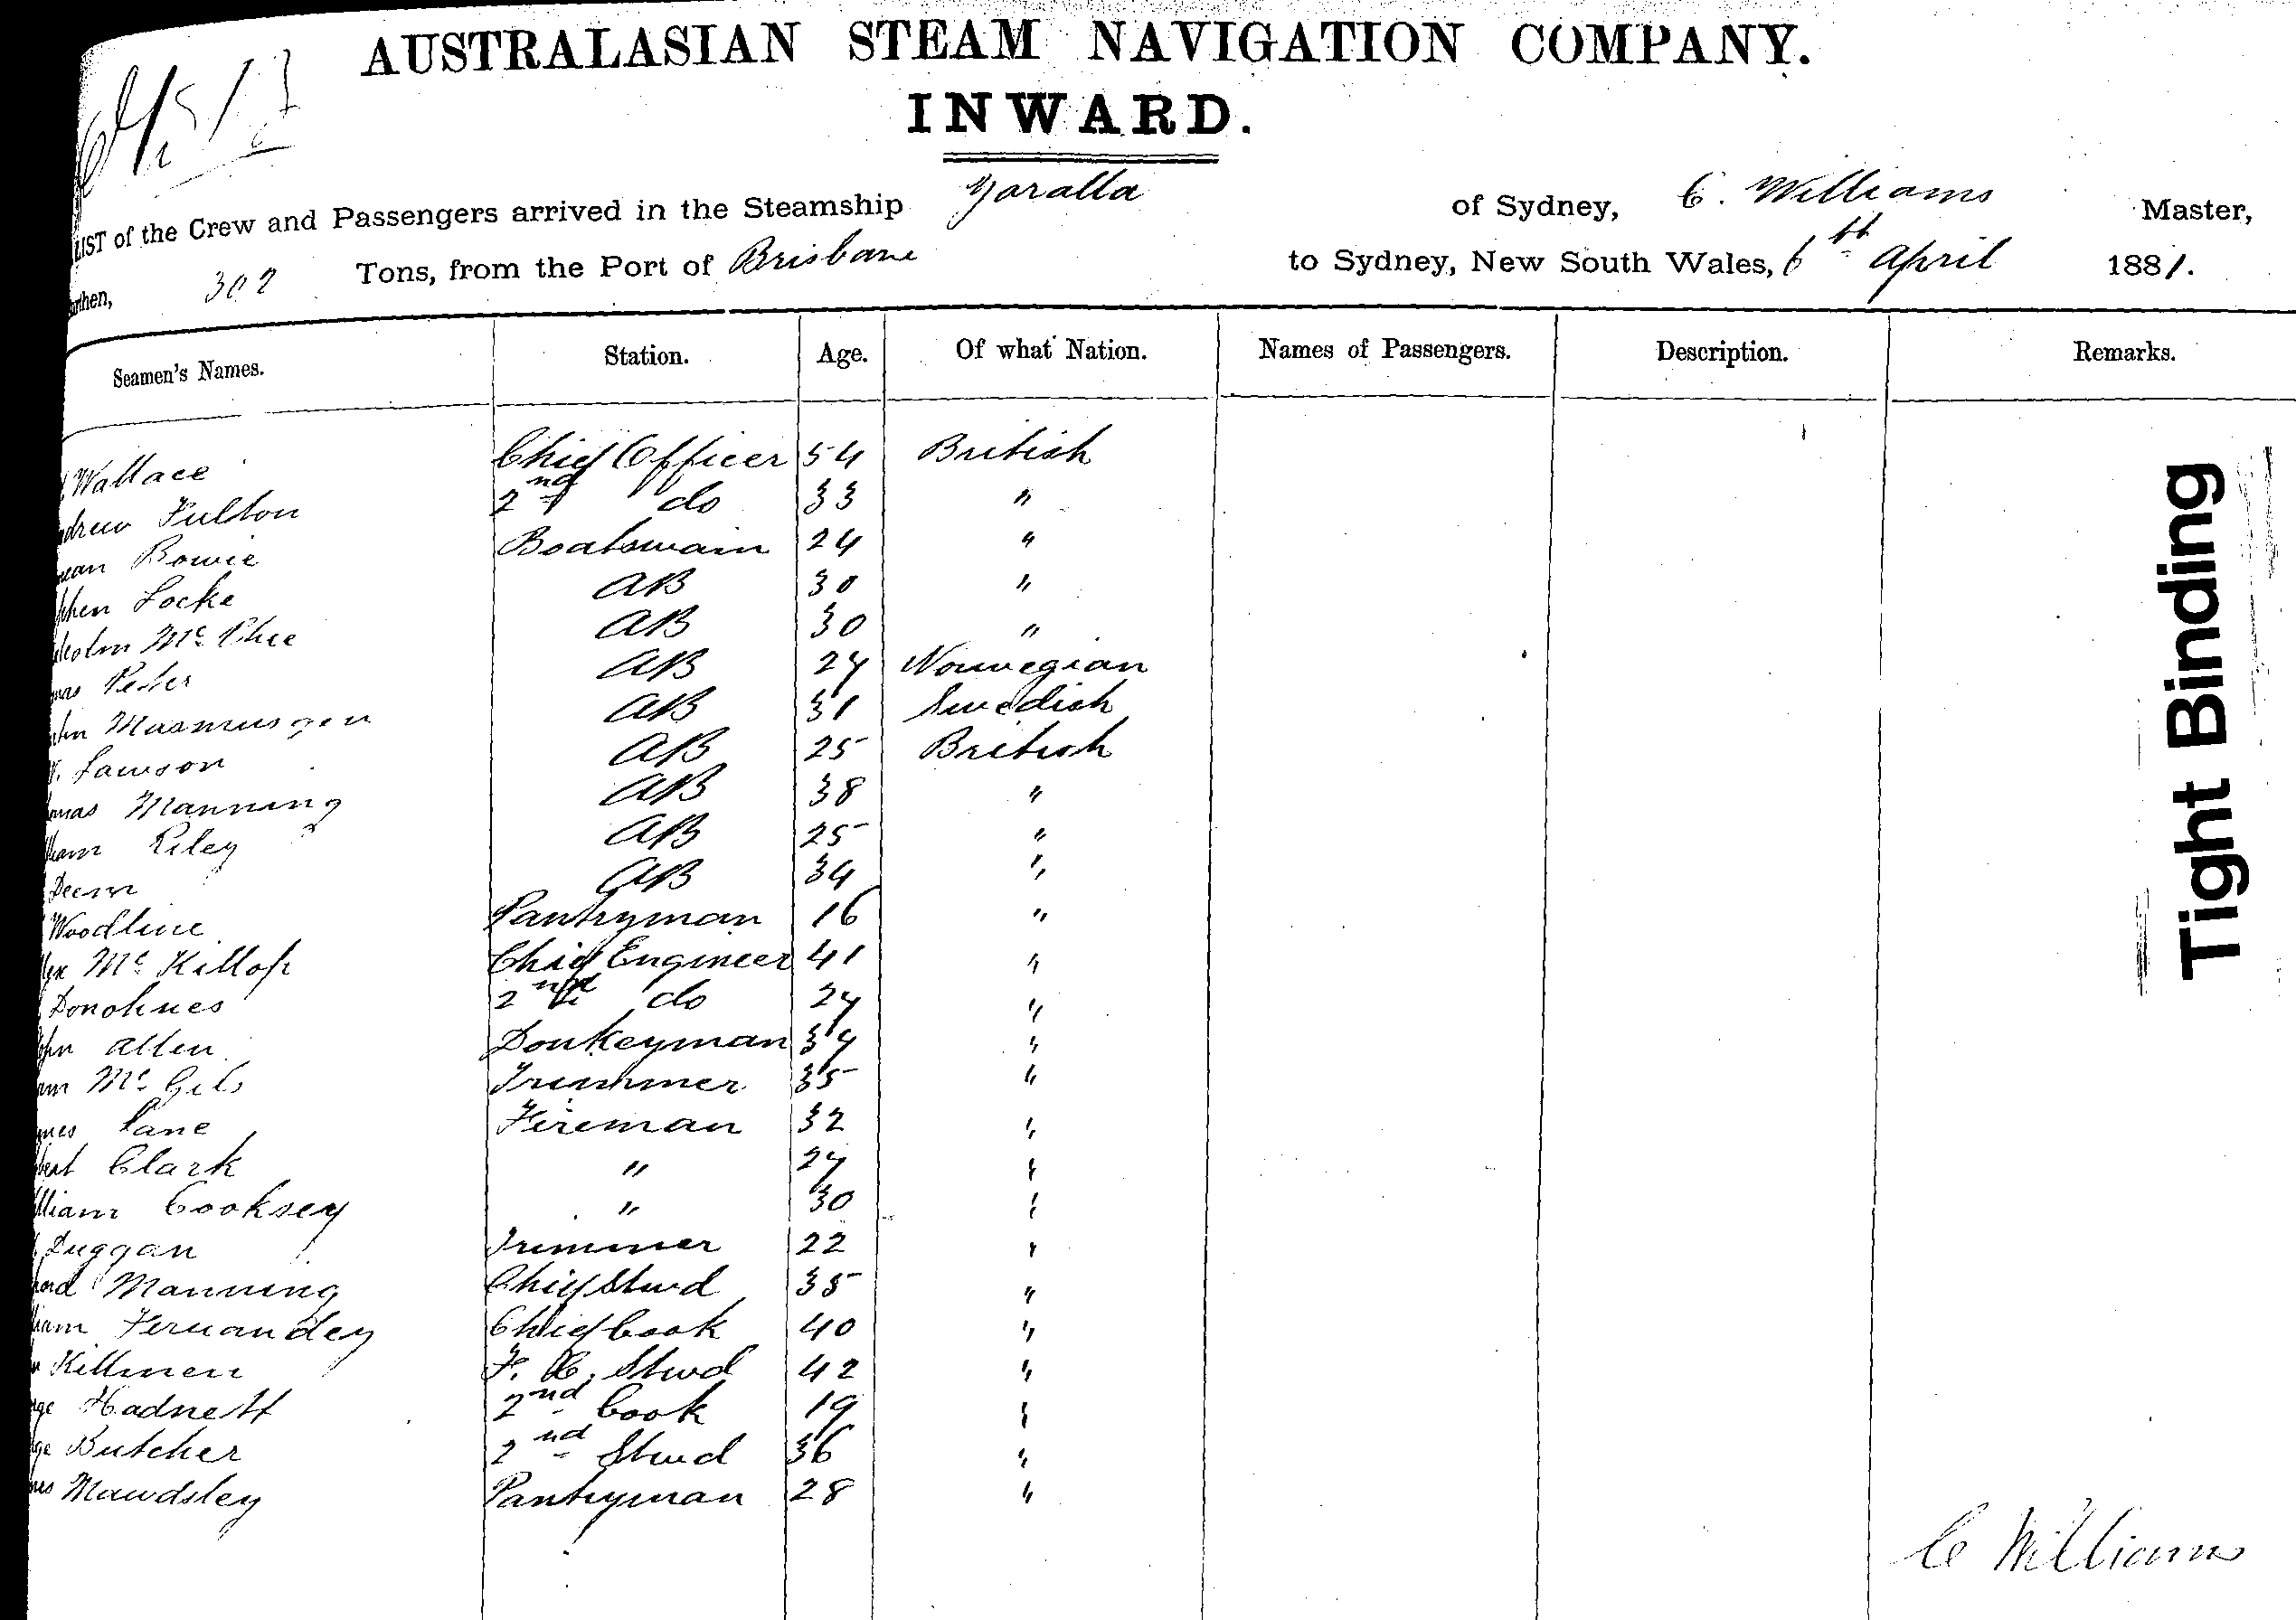 AUSTRALASIAN STEAM NAVIGATION COMPANY.
INWARD.
LIST of the Crew and Passengers arrived in the Steamship Yaralla of Sydney, C. Williams Master,
302 Tons, from the Port of Brisbane to Sydney, New South Wales, 6th April 1881.
Seamen's Names. Station. Age. Of what Nation. Names of Passengers. Description. Remarks.
Wallace Chief Officer 54 British
drew Fulton 2nd do 33 "
Bowie Boatswain 24 "
phen Locke AB 30 "
lcolm McPhee AB 30 "
mas Peter AB 24 Norwegian
AB 31 Swedish
Lawson AB 25 British
omas Manning AB 38 "
lliam Riley AB 25 "
AB 34 "
Woodline Pantryman 16 "
lex Mc Killop Chief Engineer 41 "
Donohues 2nd do 24 "
ohn Allen Donkeyman 34 "
Trimmer 35 "
mes Lane Fireman 32 "
bert Clark " 24 "
lliam Cooksey " 30 "
Duggan Trimmer 22 "
Manning Chief Stwd 35 "
liam Fernandey Chief Cook 40 "
Killmen F. C. Stwd 42 "
rge Hadnett 2nd Cook 19 "
rge Butcher 2nd Stwd 36 "
mes Mawdsley Pantryman 28 "
C Williams
Tight Binding